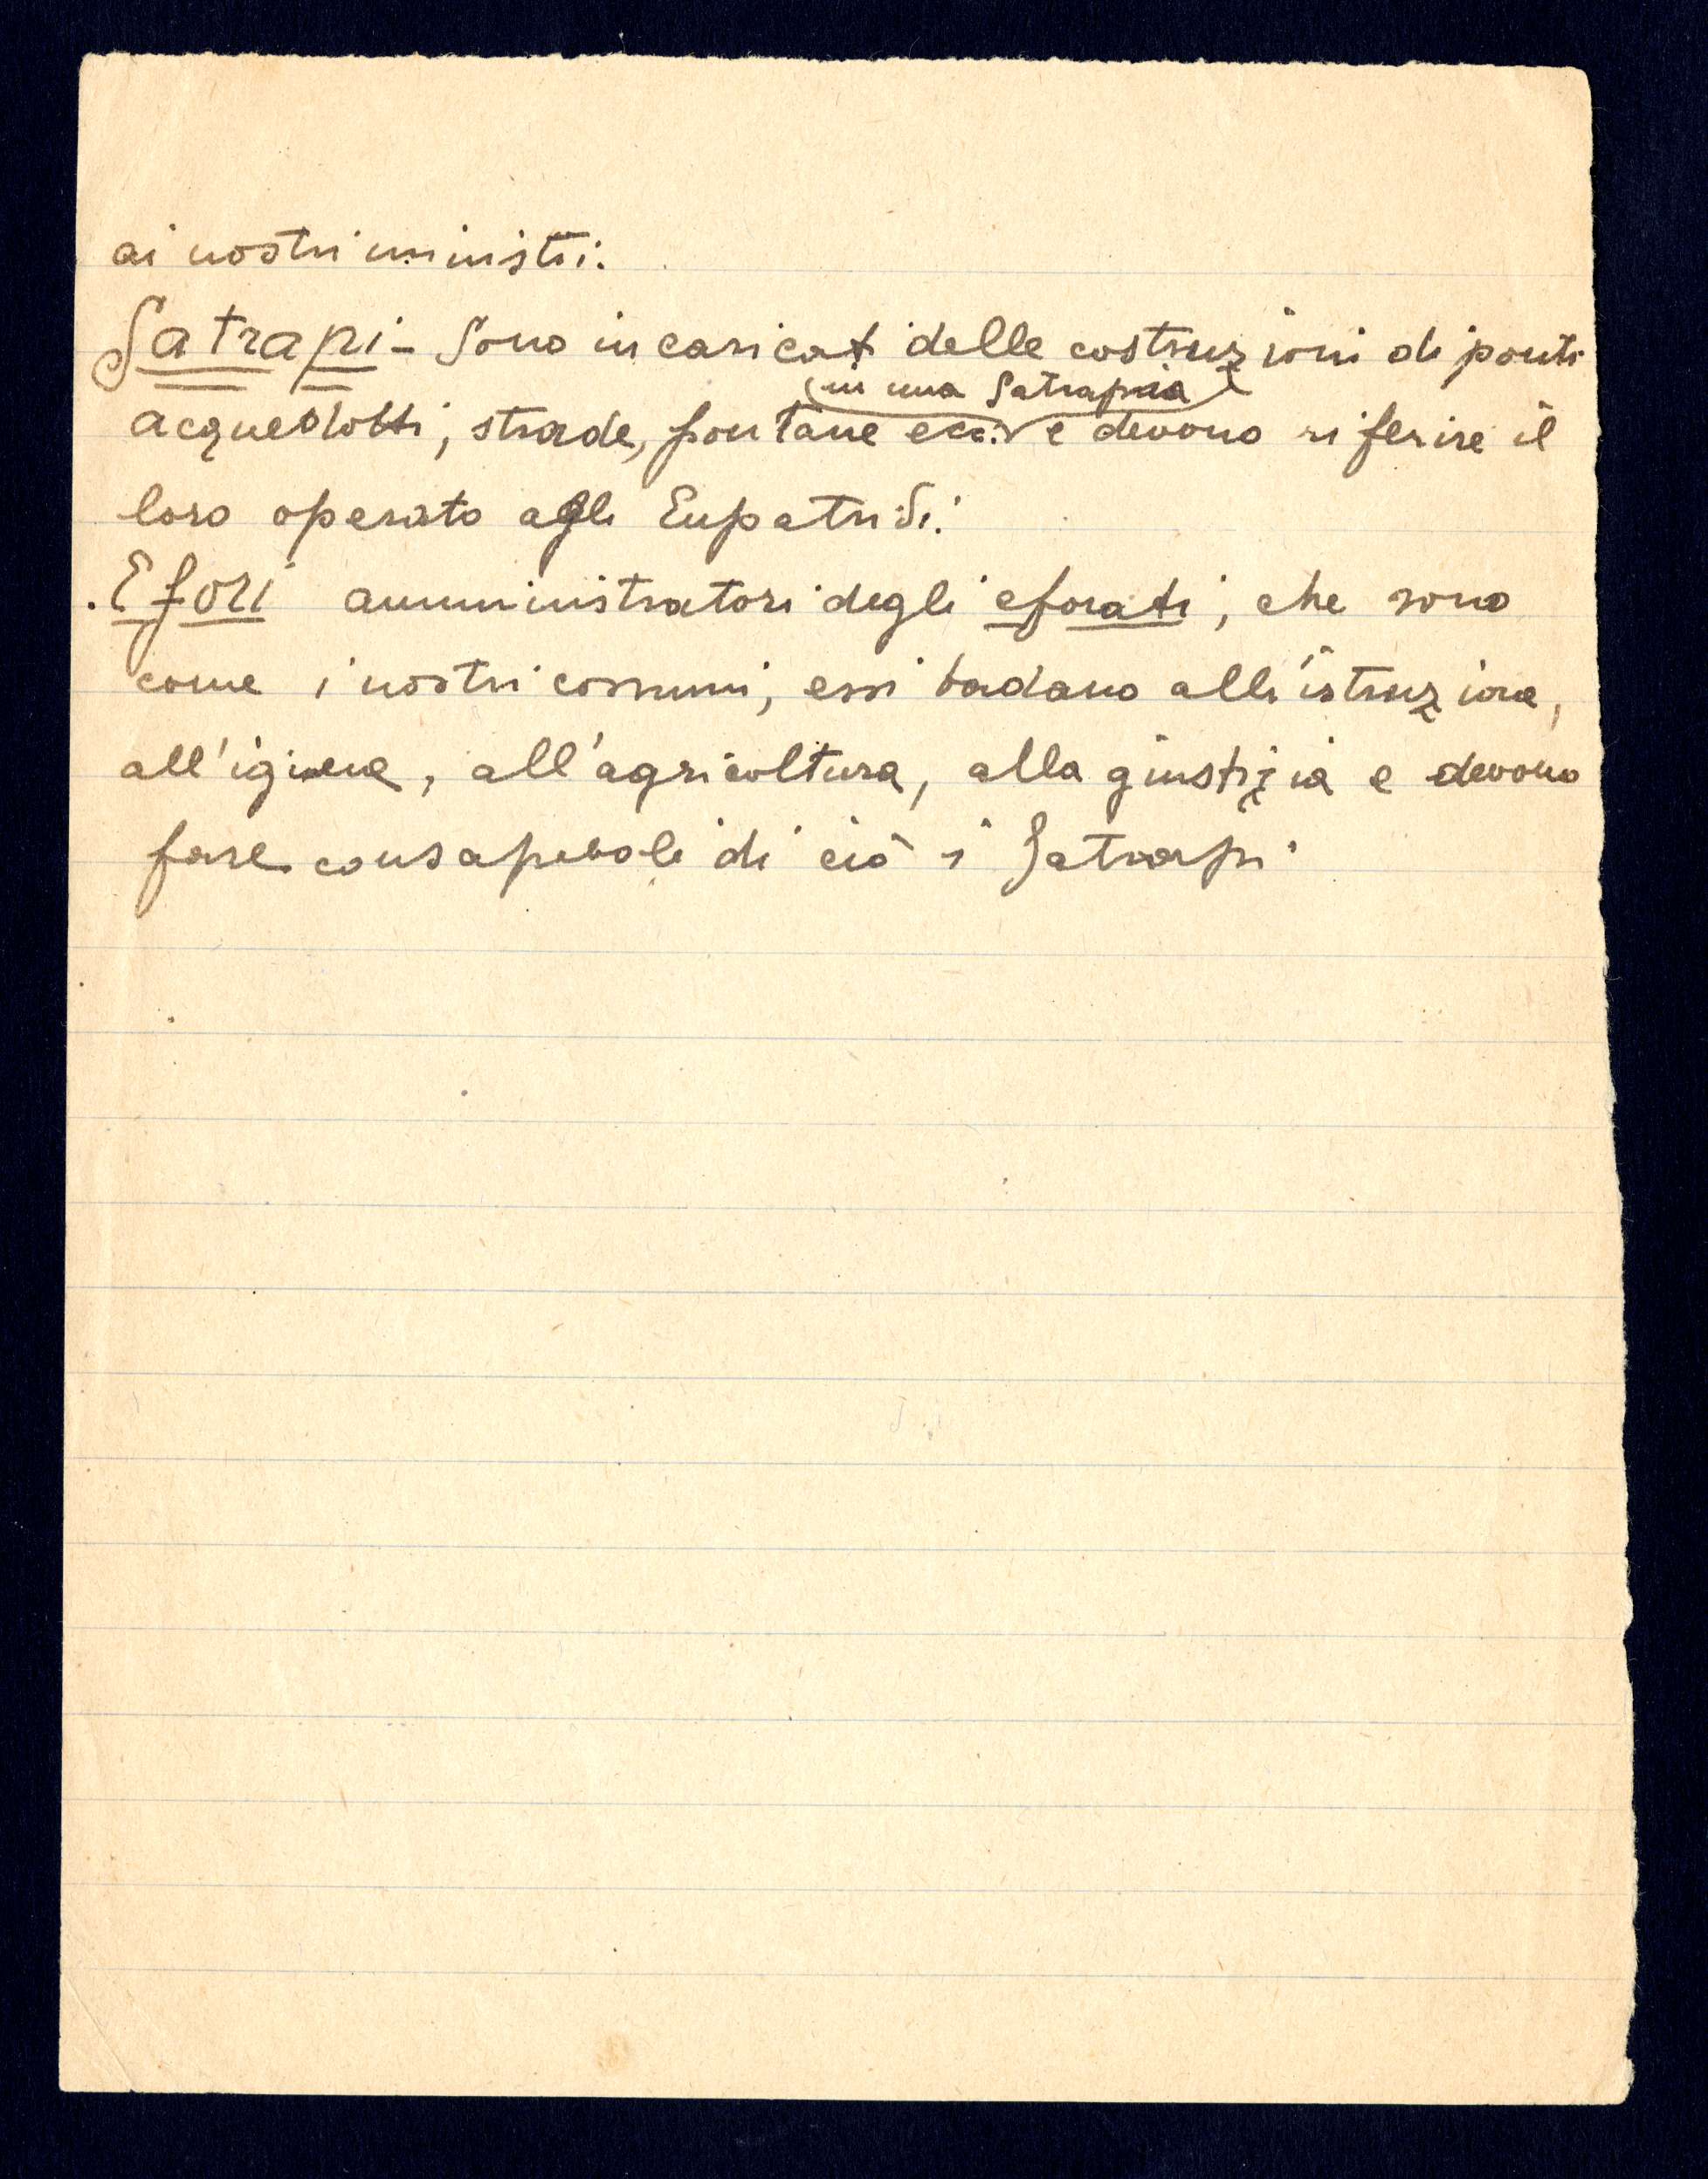 ai nostri ministri.
Satrapi - Sono incaricati delle costruzioni di ponti
(in una Satrapia)
acquedotti, strade, fontane ecc. e devono riferire il
loro operato agli Eupatridi.
Efori amministratori degli eforati, che sono
come i nostri comuni, essi badano all'istruzione,
all'igiene, all'agricoltura, alla giustizia e devono
fare consapevoli di ciò i Satrapi